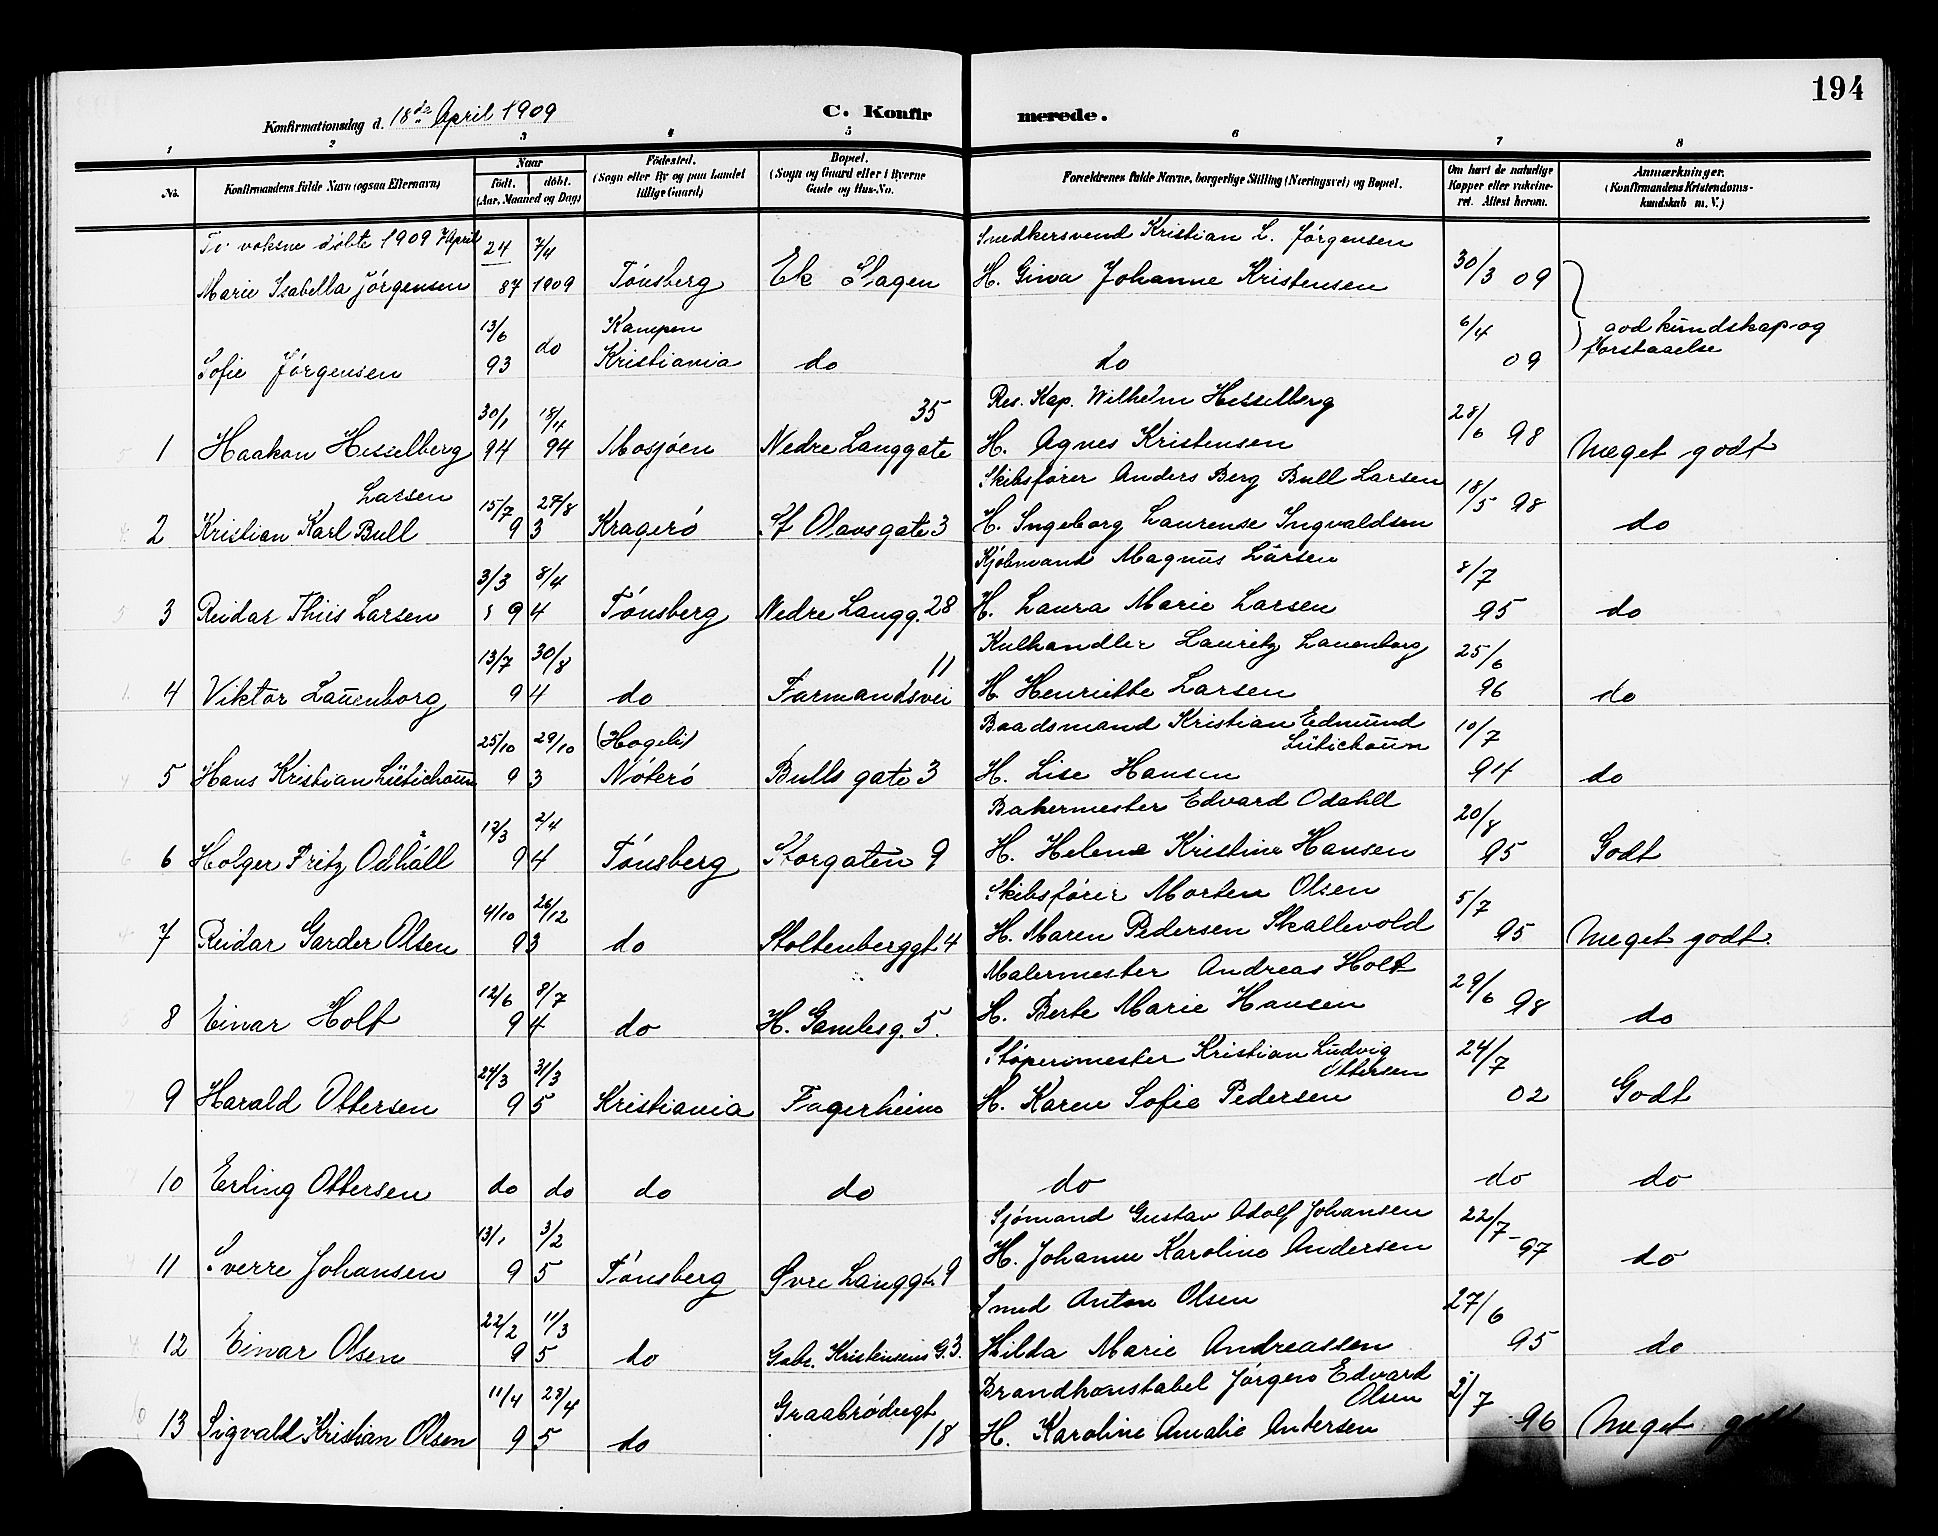 194
Konfirmationsdag d. 18de April 1909 C. Konfirmerede.
1 2 3 4 5 6 7 8
No. Konfirmandens fulde Navn (ogsaa Efternavn) Naar født. døbt. (Aar, Maaned og Dag) Fødested. (Sogn eller By og paa Landet tillige Gaard) Bopæl. (Sogn og Gaard eller i Byerne Gade og Hus-No. Forældrenes fulde Navne, borgerlige Stilling (Næringsvei) og Bopæl. Om havt de naturlige Kopper eller vakcineret. Attest herom. Anmærkninger. (Konfirmandens Kristendomskundskab m. V.)
To voksne døbte 1909 7 April 24 7/4 Snedkersvend Kristian L. Jørgensen 30/3
Marie Izabella Jørgensen 87 1909 Tønsberg Ek Slagen H. Gina Johanne Kristensen 09
13/6 do Kampen 6/4 god kundskap og
Sofie Jørgensen 93 Kristiania do do 09 forstaaelse
30/1 18/4 35 Res. Kap. Wilhelm Hesselberg 28/6
1 Haakon Hesselberg 94 94 Mosjøen Nedre Langgate H. Agnes Kristensen 98 Meget godt
Larsen 15/7 27/8 Skibsfører Anders Berg Bull Larsen 18/5 98
2 Kristian Karl Bull 93 Kragerø St Olavsgate 3 H. Ingeborg Laurense Ingvaldsen do
3/3 8/4 Kjøbmand Magnus Larsen 8/7
3 Reidar Thiis Larsen 94 Tønsberg Nedre Langg. 28 H. Laura Marie Larsen 95 do
13/7 30/8 11 Kulhandler Lauritz Lauenborg 25/6
4 Viktor Lauenborg 94 do Farmandsvei H Henriette Larsen 96 do
25/10 29/10 (Hogeli) Baadsmand Kristian Edmund Lütichoun 10/7
5 Hans Kristian Lütichoun 93 Nøterø Bulls gate 3 H. Lise Hansen 94 do
12/3 2/4 Bakermester Edvard Odahll 20/8
6 Holger Fritz Odhåll 94 Tønsberg Storgaten 9 H. Helene Kristine Hansen 95 Godt
4/10 26/12 Skibsfører Morten Olsen 5/7
7 Reidar Garder Olsen 93 do Stoltenberggt 4 H. Maren Pedersen Skallevold 95 Meget godt.
12/6 8/7 Malermester Andreas Holt 29/6
8 Einar Holt 94 do H. Gamlesg. 5. H. Berte Marie Hansen 98 do
24/3 31/3 Støperimester Kristian Ludvig Ottersen 24/7
9 Harald Ottersen 95 Kristiania Fagerheim H. Karen Sofie Pedersen 02 Godt
10 Erling Ottersen do do do do do do do
13/1 3/2 Sjømand Gustav Adolf Johansen 22/7
11 Sverre Johansen 95 Tønsberg Øvre Langgt. 9 H. Johanne Karoline Andersen 97 do
22/2 11/3 Smed Anton Olsen 27/6
12 Einar Olsen 95 do Gabr. Kristensens G. 3. Hilda Marie Andreassen 95 do
11/4 23/4 Graabrødregt Brandkonstabel Jørgen Edvard Olsen 2/7
13 Sigvald Kristian Olsen 95 do 18 H. Karoline Amalie Antersen 96 Meget godt